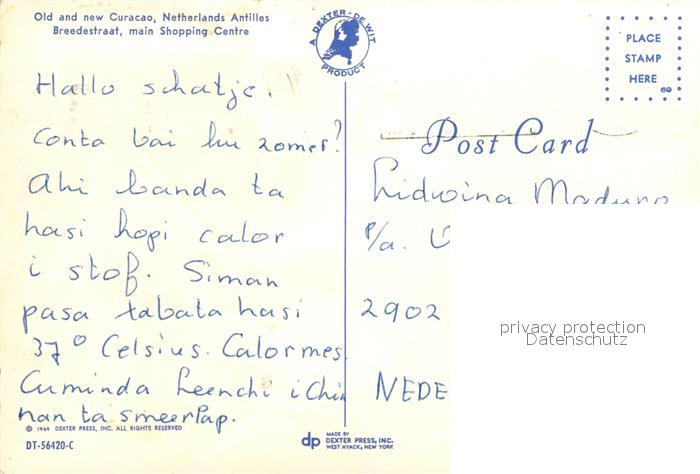 Old and new Curacao, Netherlands Antilles
Breedestraat, main Shopping Centre
A DEXTER-DE WIT PRODUCT
PLACE
STAMP
HERE
69
Post Card
Hallo schatje.
Conta bai hu zomer?
Ahi banda ta
hasi hopi calor
i stof. Siman
pasa tabata hasi
37° Celsius. Calor mes.
Cuminda Leenchi i Chin
nan ta smeerlap.
Lidwina Maduro
P/a.
2902
NEDE
privacy protection
Datenschutz
© 1969 DEXTER PRESS, INC. ALL RIGHTS RESERVED
DT-56420-C
dp MADE BY
DEXTER PRESS, INC.
WEST NYACK, NEW YORK